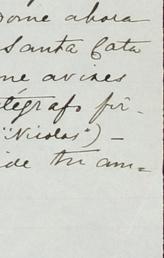 ome ahora
Santa Cata
me avises
telégrafo fir-
"Nicolas") —
ide tu am=